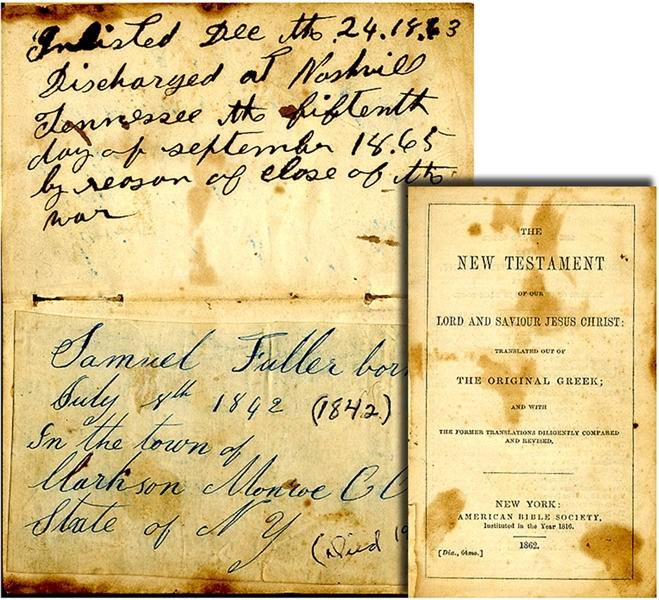 Inlisted Dec the 24.18.63
Discharged at Nashvill
Tennessee the fiftenth
day of september 18.65
by reason of close of the
war
Samuel Fuller born
July 8th 1842 (1842)
In the town of
Clarkson Monroe C
State of N Y
(Died 19
THE
NEW TESTAMENT
OF OUR
LORD AND SAVIOUR JESUS CHRIST:
TRANSLATED OUT OF
THE ORIGINAL GREEK;
AND WITH
THE FORMER TRANSLATIONS DILIGENTLY COMPARED
AND REVISED.
NEW YORK:
AMERICAN BIBLE SOCIETY,
Instituted in the Year 1816.
1862.
[Dia., 64mo.]